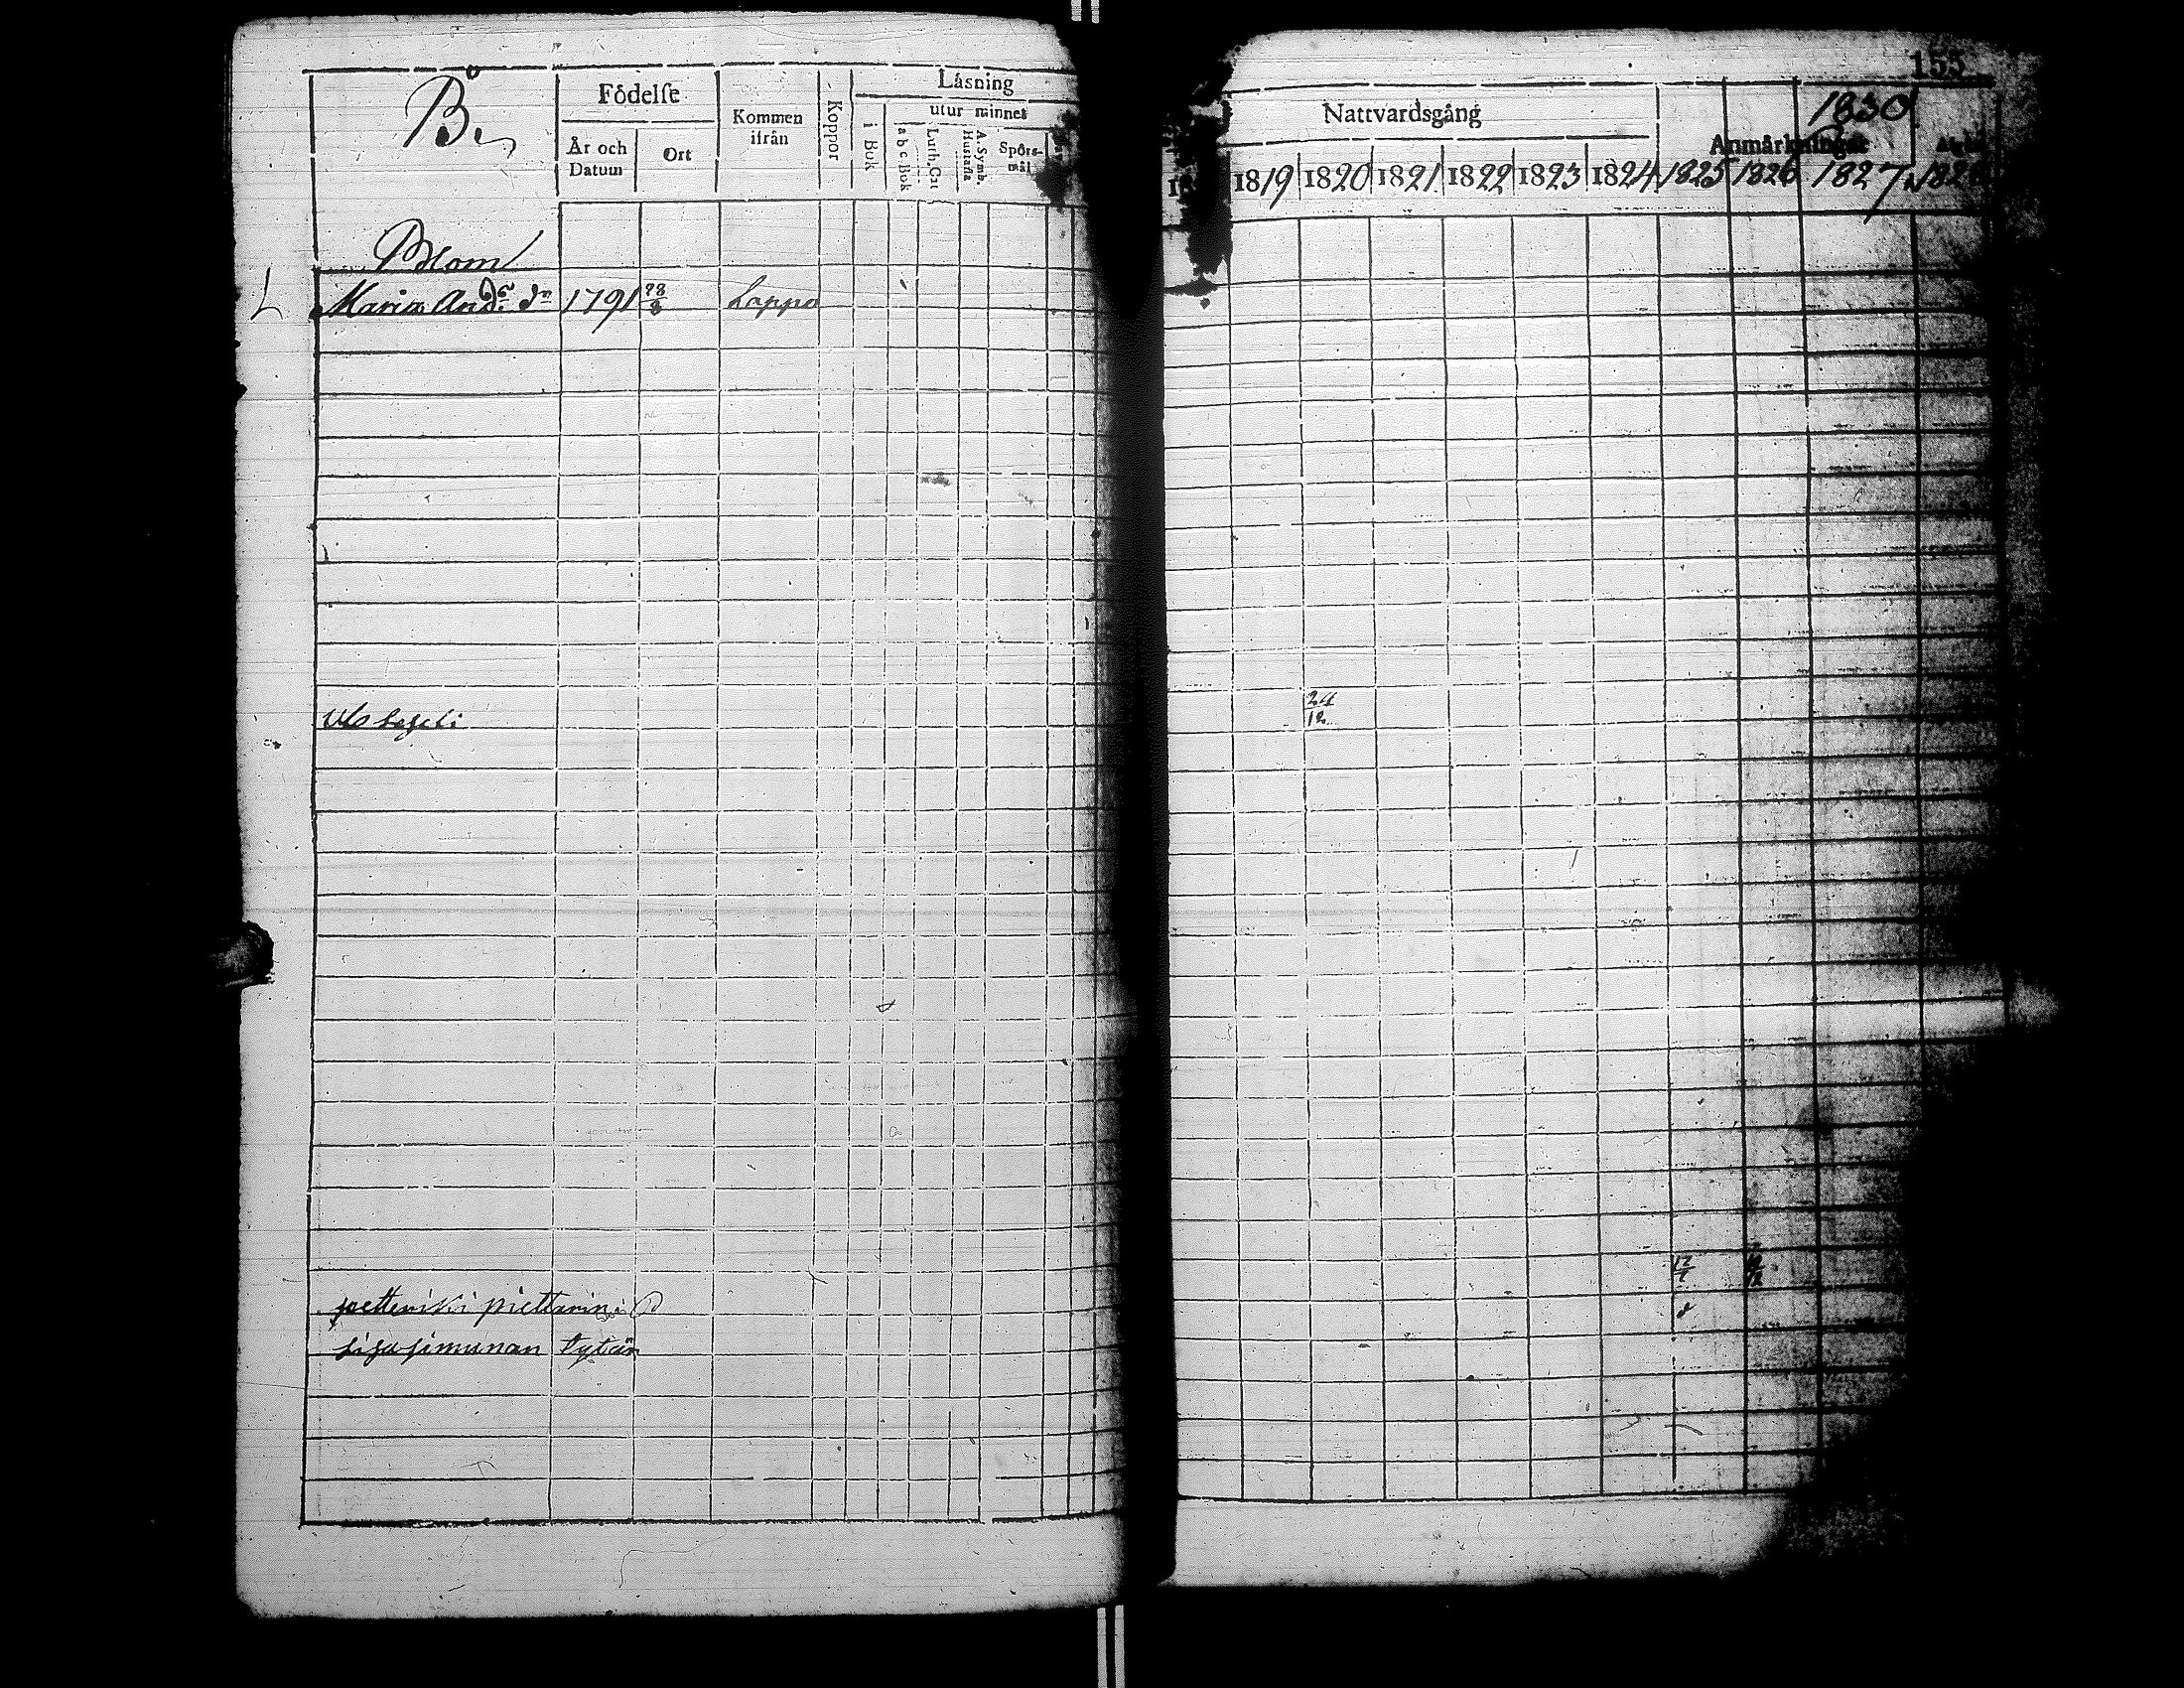 B.
Födelse
År och Datum
Ort
Kommen ifrån
Koppor
Läsning
i Bok
utur minnet
a b c Bok
Luth. Cat
A. Symb. Hustafla
Spörsmål
Blom
L Maria And:s dr 1791 28/8 Lappo
pietterinki piettarin
lisa simunan tytär
155
Nattvardsgång
1830
Anmärkningar
1819 1820 1821 1822 1823 1824 1825 1826 1827
24/12